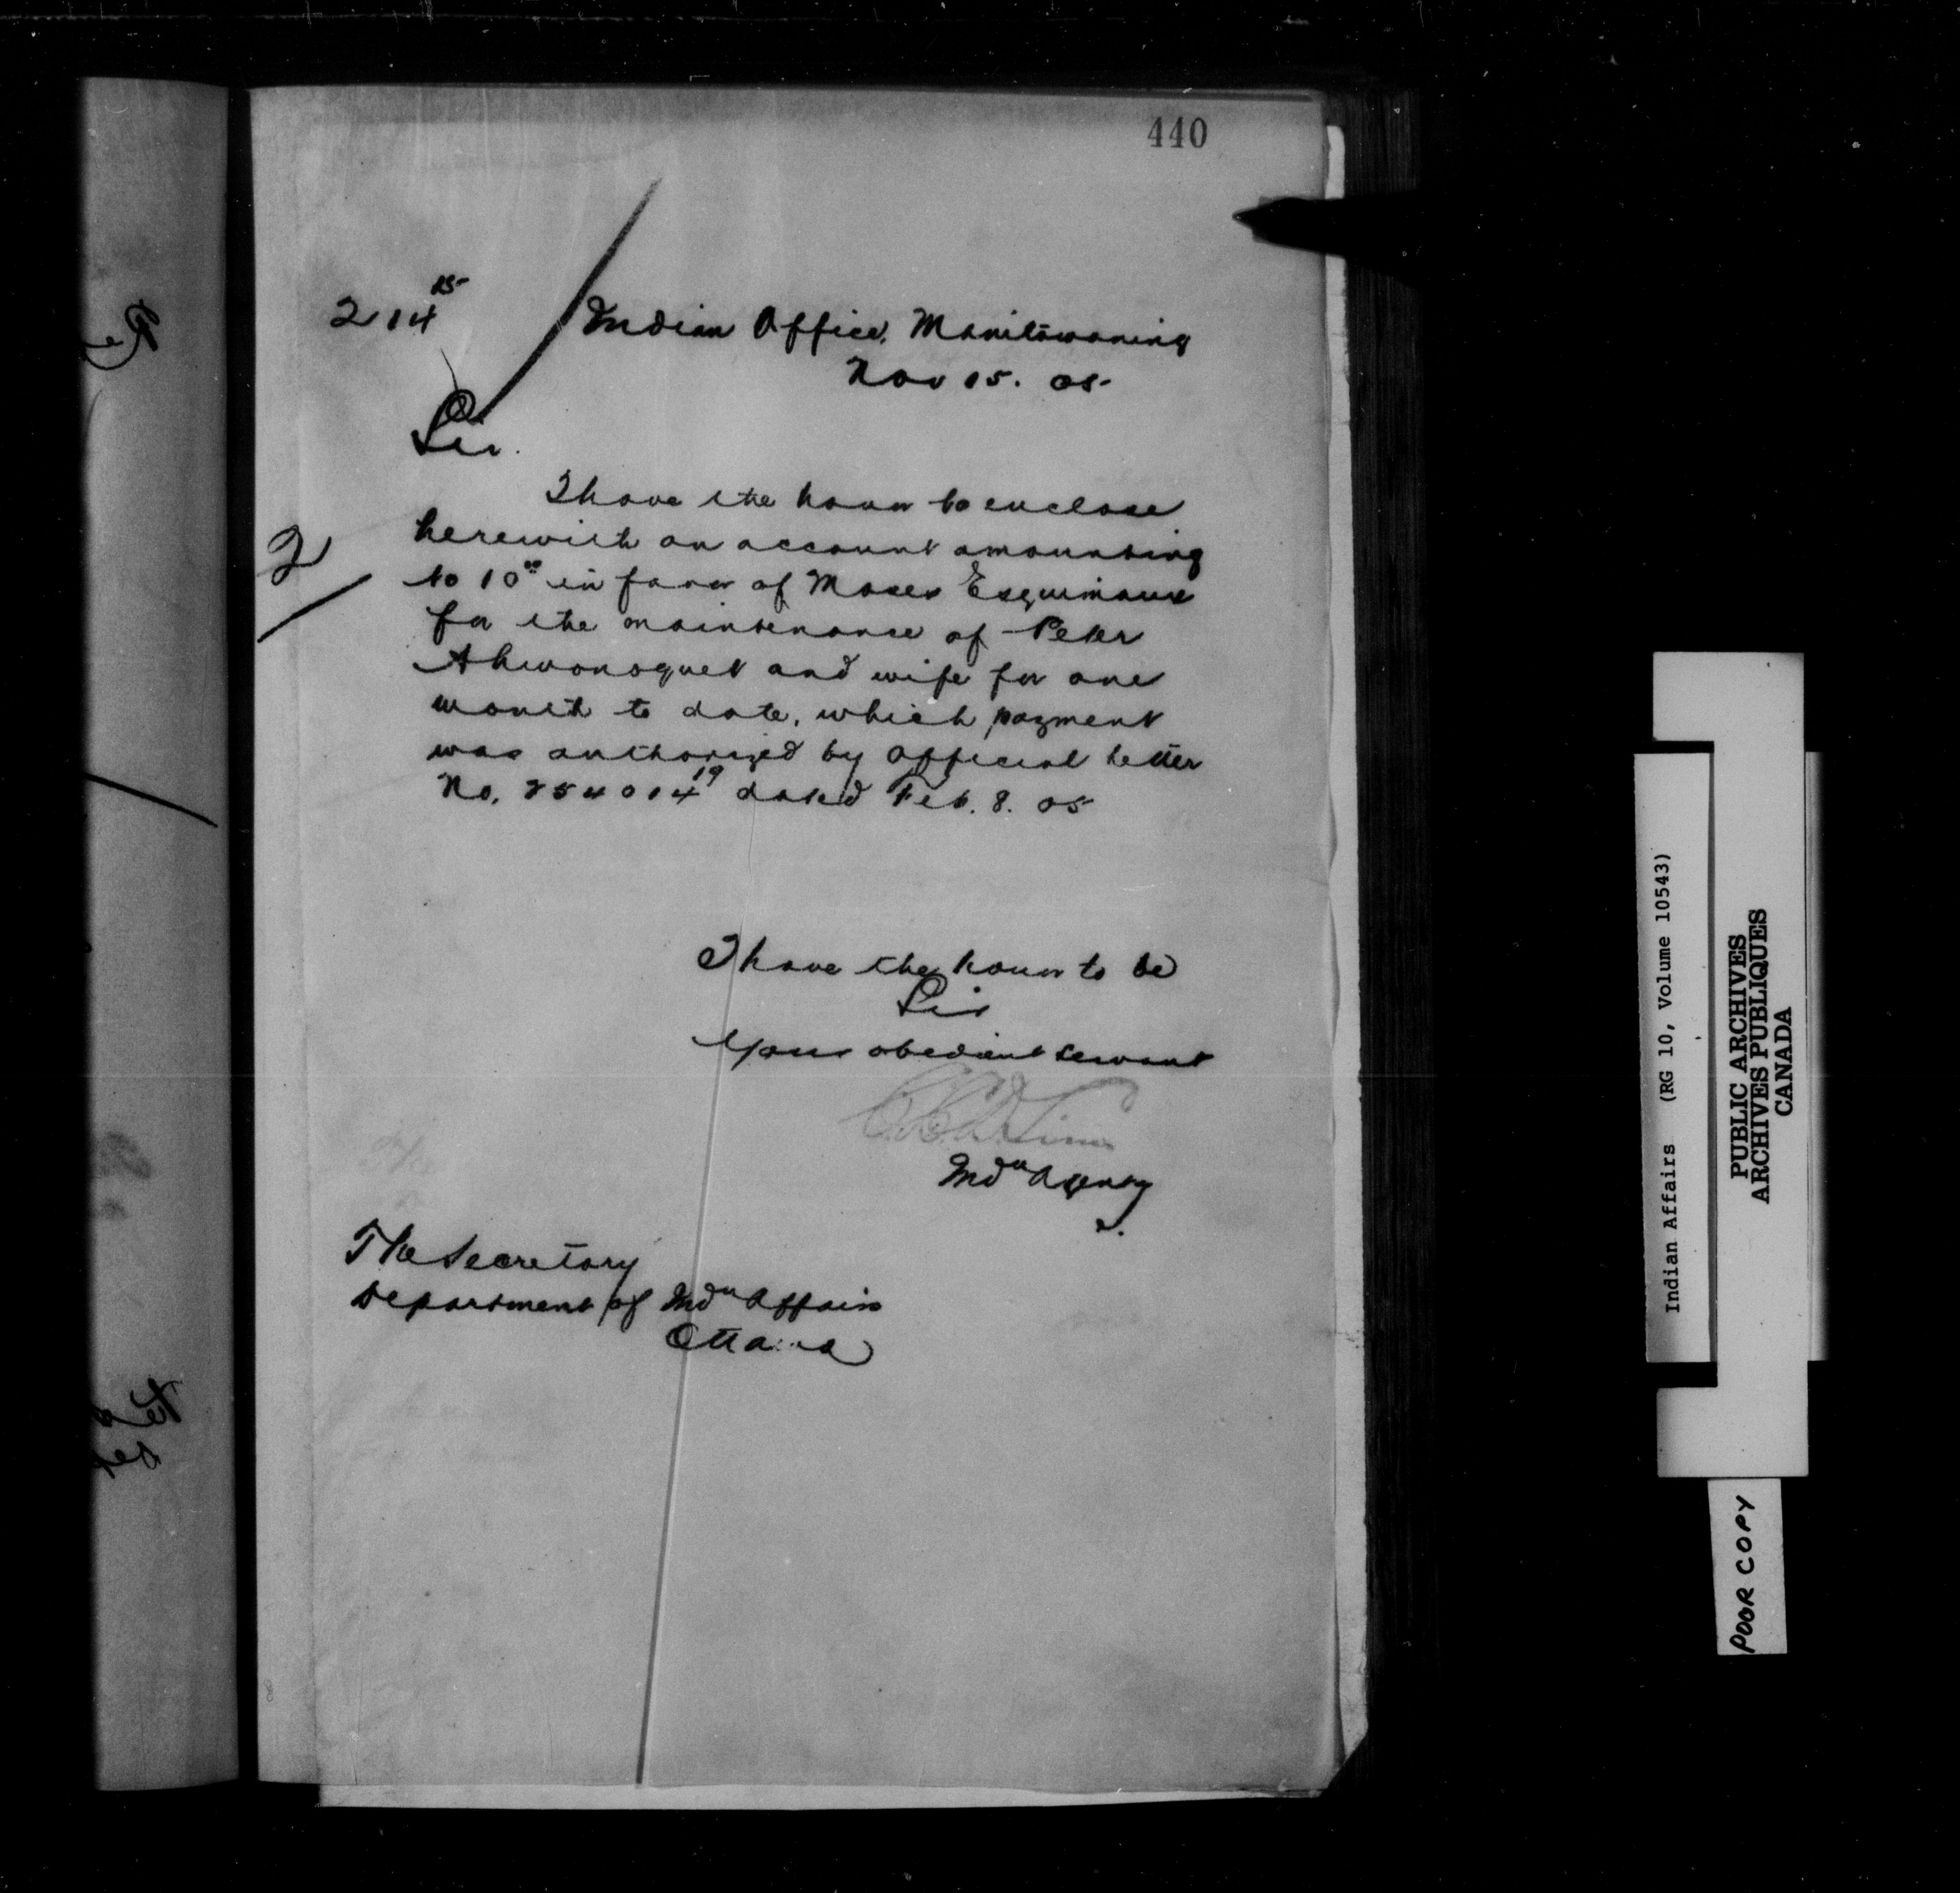 440
214 15
Indian Office, Manitowaning
Nov 15. 05
Sir.
I have the honor to enclose
herewith an account amounting
2
to 10 00 in favor of Moses Esquimaux
for the maintenance of Peter
Ahwonoquet and wife for one
month to date, which payment
was authorized by Official letter
No. 254014 19 dated Feb. 8. 05
I have the honor to be
Sir
Your obedient servant
Indn Agent
The Secretary
Department of Indn Affairs
Ottawa
Indian Affairs (RG 10, Volume 10543)
PUBLIC ARCHIVES
ARCHIVES PUBLIQUES
CANADA
POOR COPY